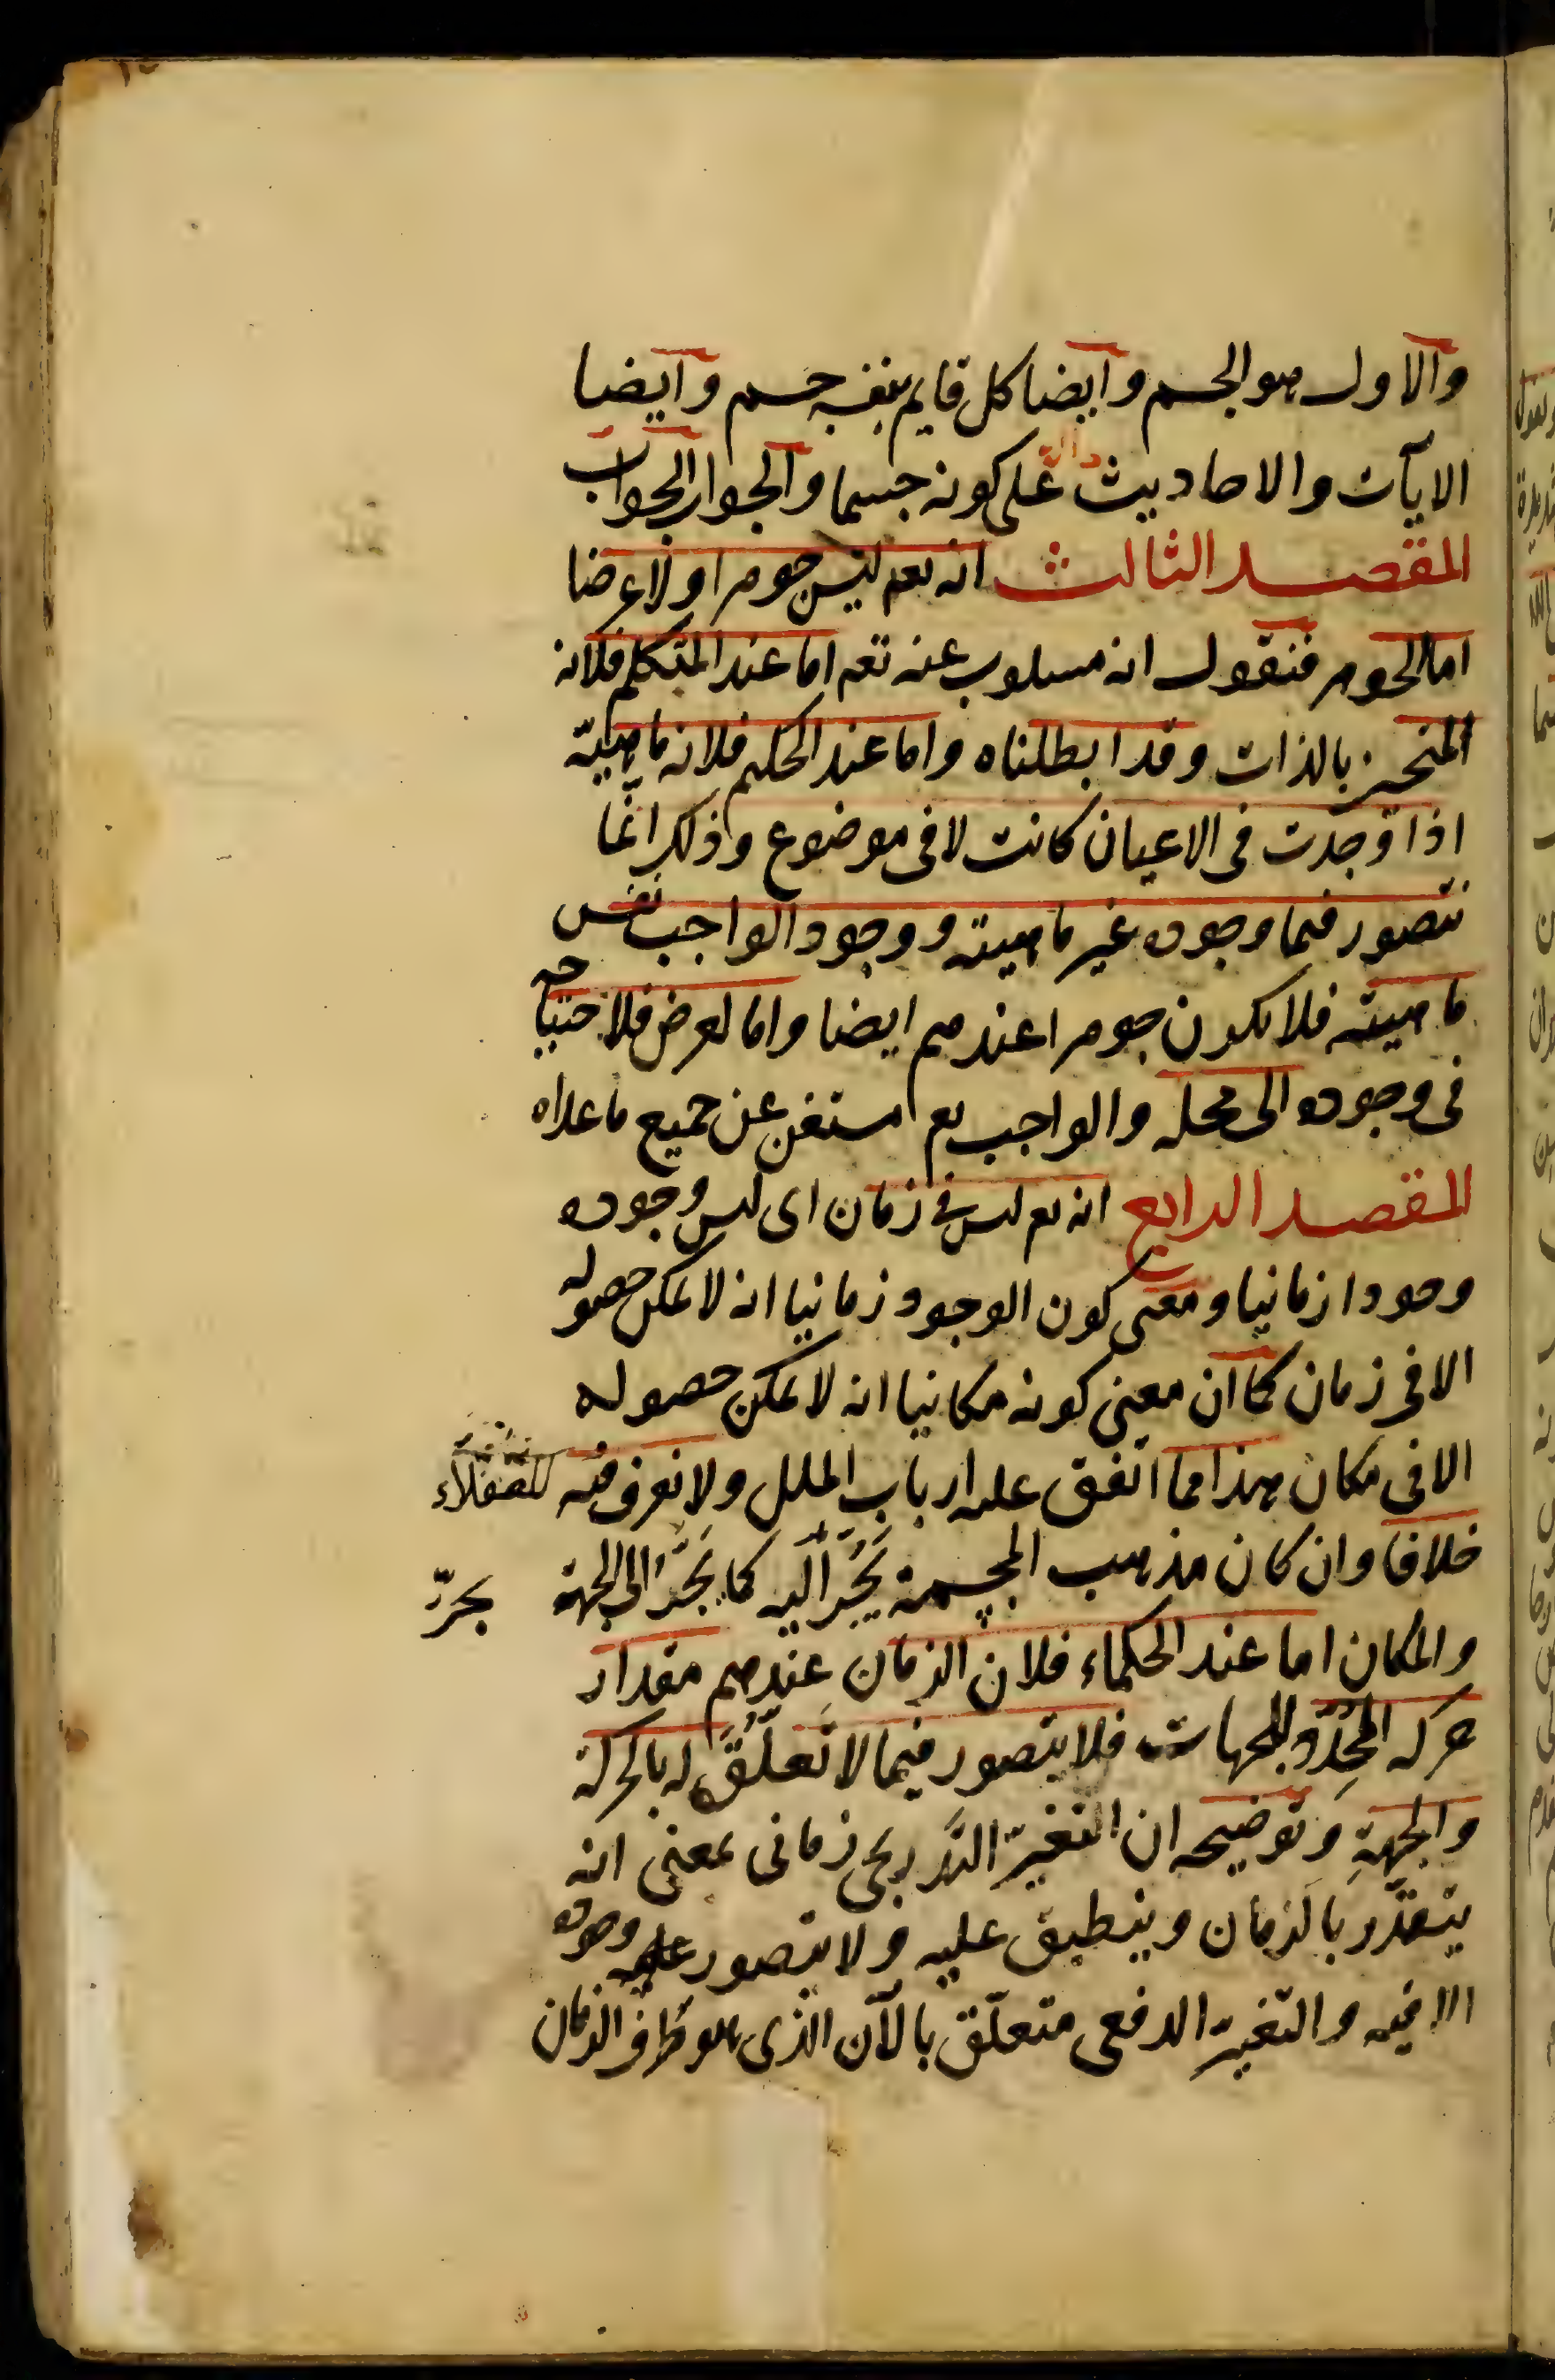 والاول هو الجسم وايضا كل قايم بنفسه جسم وايضا
الايات والاحاديث دالة على كونه جسما والجواب الجواب
المقصد الثالث انه تعم ليس جوهرا ولا عرضا
اما الجوهر فنقول انه مسلوب عنه تعم اما عند المتكلم فلانه
المتحيز بالذات وقد ابطلناه واما عند الحكيم فلانه ماهيّة
اذا وجدت فى الاعيان كانت لا فى موضوع وذلك انّما
يتصور فيما وجوده غير ماهيته ووجود الواجب نفس
ماهيته فلا يكون جوهرا عندهم ايضا واما العرض فلاحتياجه
فى وجوده الى محله والواجب تعم مستغن عن جميع ما عداه
المقصد الرابع انه تعم ليس فى زمان اى ليس وجوده
وجودا زمانيا ومعنى كون الوجود زمانيا انه لا يمكن حصوله
الا فى زمان كما ان معنى كونه مكانيا انه لا يمكن حصوله
الا فى مكان هذا مما اتفق عليه ارباب الملل ولا نعرف فيه للعقلاء
خلافا وان كان مذهب المجسمة يَجُرّ اليه كما يَجُرّ الى الجهة
يجرّ
والمكان اما عند الحكماء فلان الزمان عندهم مقدار
حركة المحدّد للجهات فلا يتصور فيما لا تعلّق له بالحركة
والجهةِ وتوضيحه ان التغيّر التدريجى زمانى بمعنى انه
يتقدّر بالزمان وينطبق عليه ولا يتصور وجوده
الا فيه والتّغيّر الدفعى متعلّق بالآن الذى هو طرف الزمان